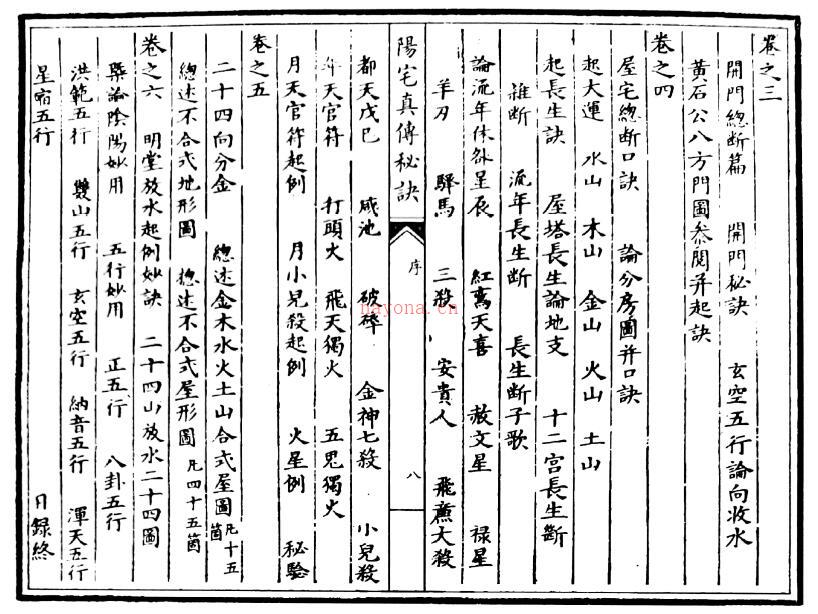 卷之三
開門總断篇 開門秘訣 玄空五行論向收水
黃石公八方門圖參閱并起訣
卷之四
屋宅總断口訣 論分房圖并口訣
起大運 水山 木山 金山 火山 土山
起長生訣 屋塔長生論地支 十二宮長生斷
雜断 流年長生断 長生断子歌
論流年休咎星辰 紅鸞天喜 赦文星 禄星
羊刃 驛馬 三殺 安貴人 飛廉大殺
陽宅真傳秘訣 序 八
都天戊己 咸池 破碎 金神七殺 小兒殺
年天官符 打頭火 飛天獨火 五鬼獨火
月天官符起例 月小兒殺起例 火星例 秘驗
卷之五
二十四向分金 總述金木水火土山合式屋圖 凡十五箇
總述不合式地形圖 總述不合式屋形圖 凡四十五箇
卷之六 明堂放水起例妙訣 二十四山放水二十四圖
槩論陰陽妙用 五行妙用 正五行 八卦五行
洪範五行 雙山五行 玄空五行 納音五行 渾天五行
星宿五行 目錄終
nayona.cn